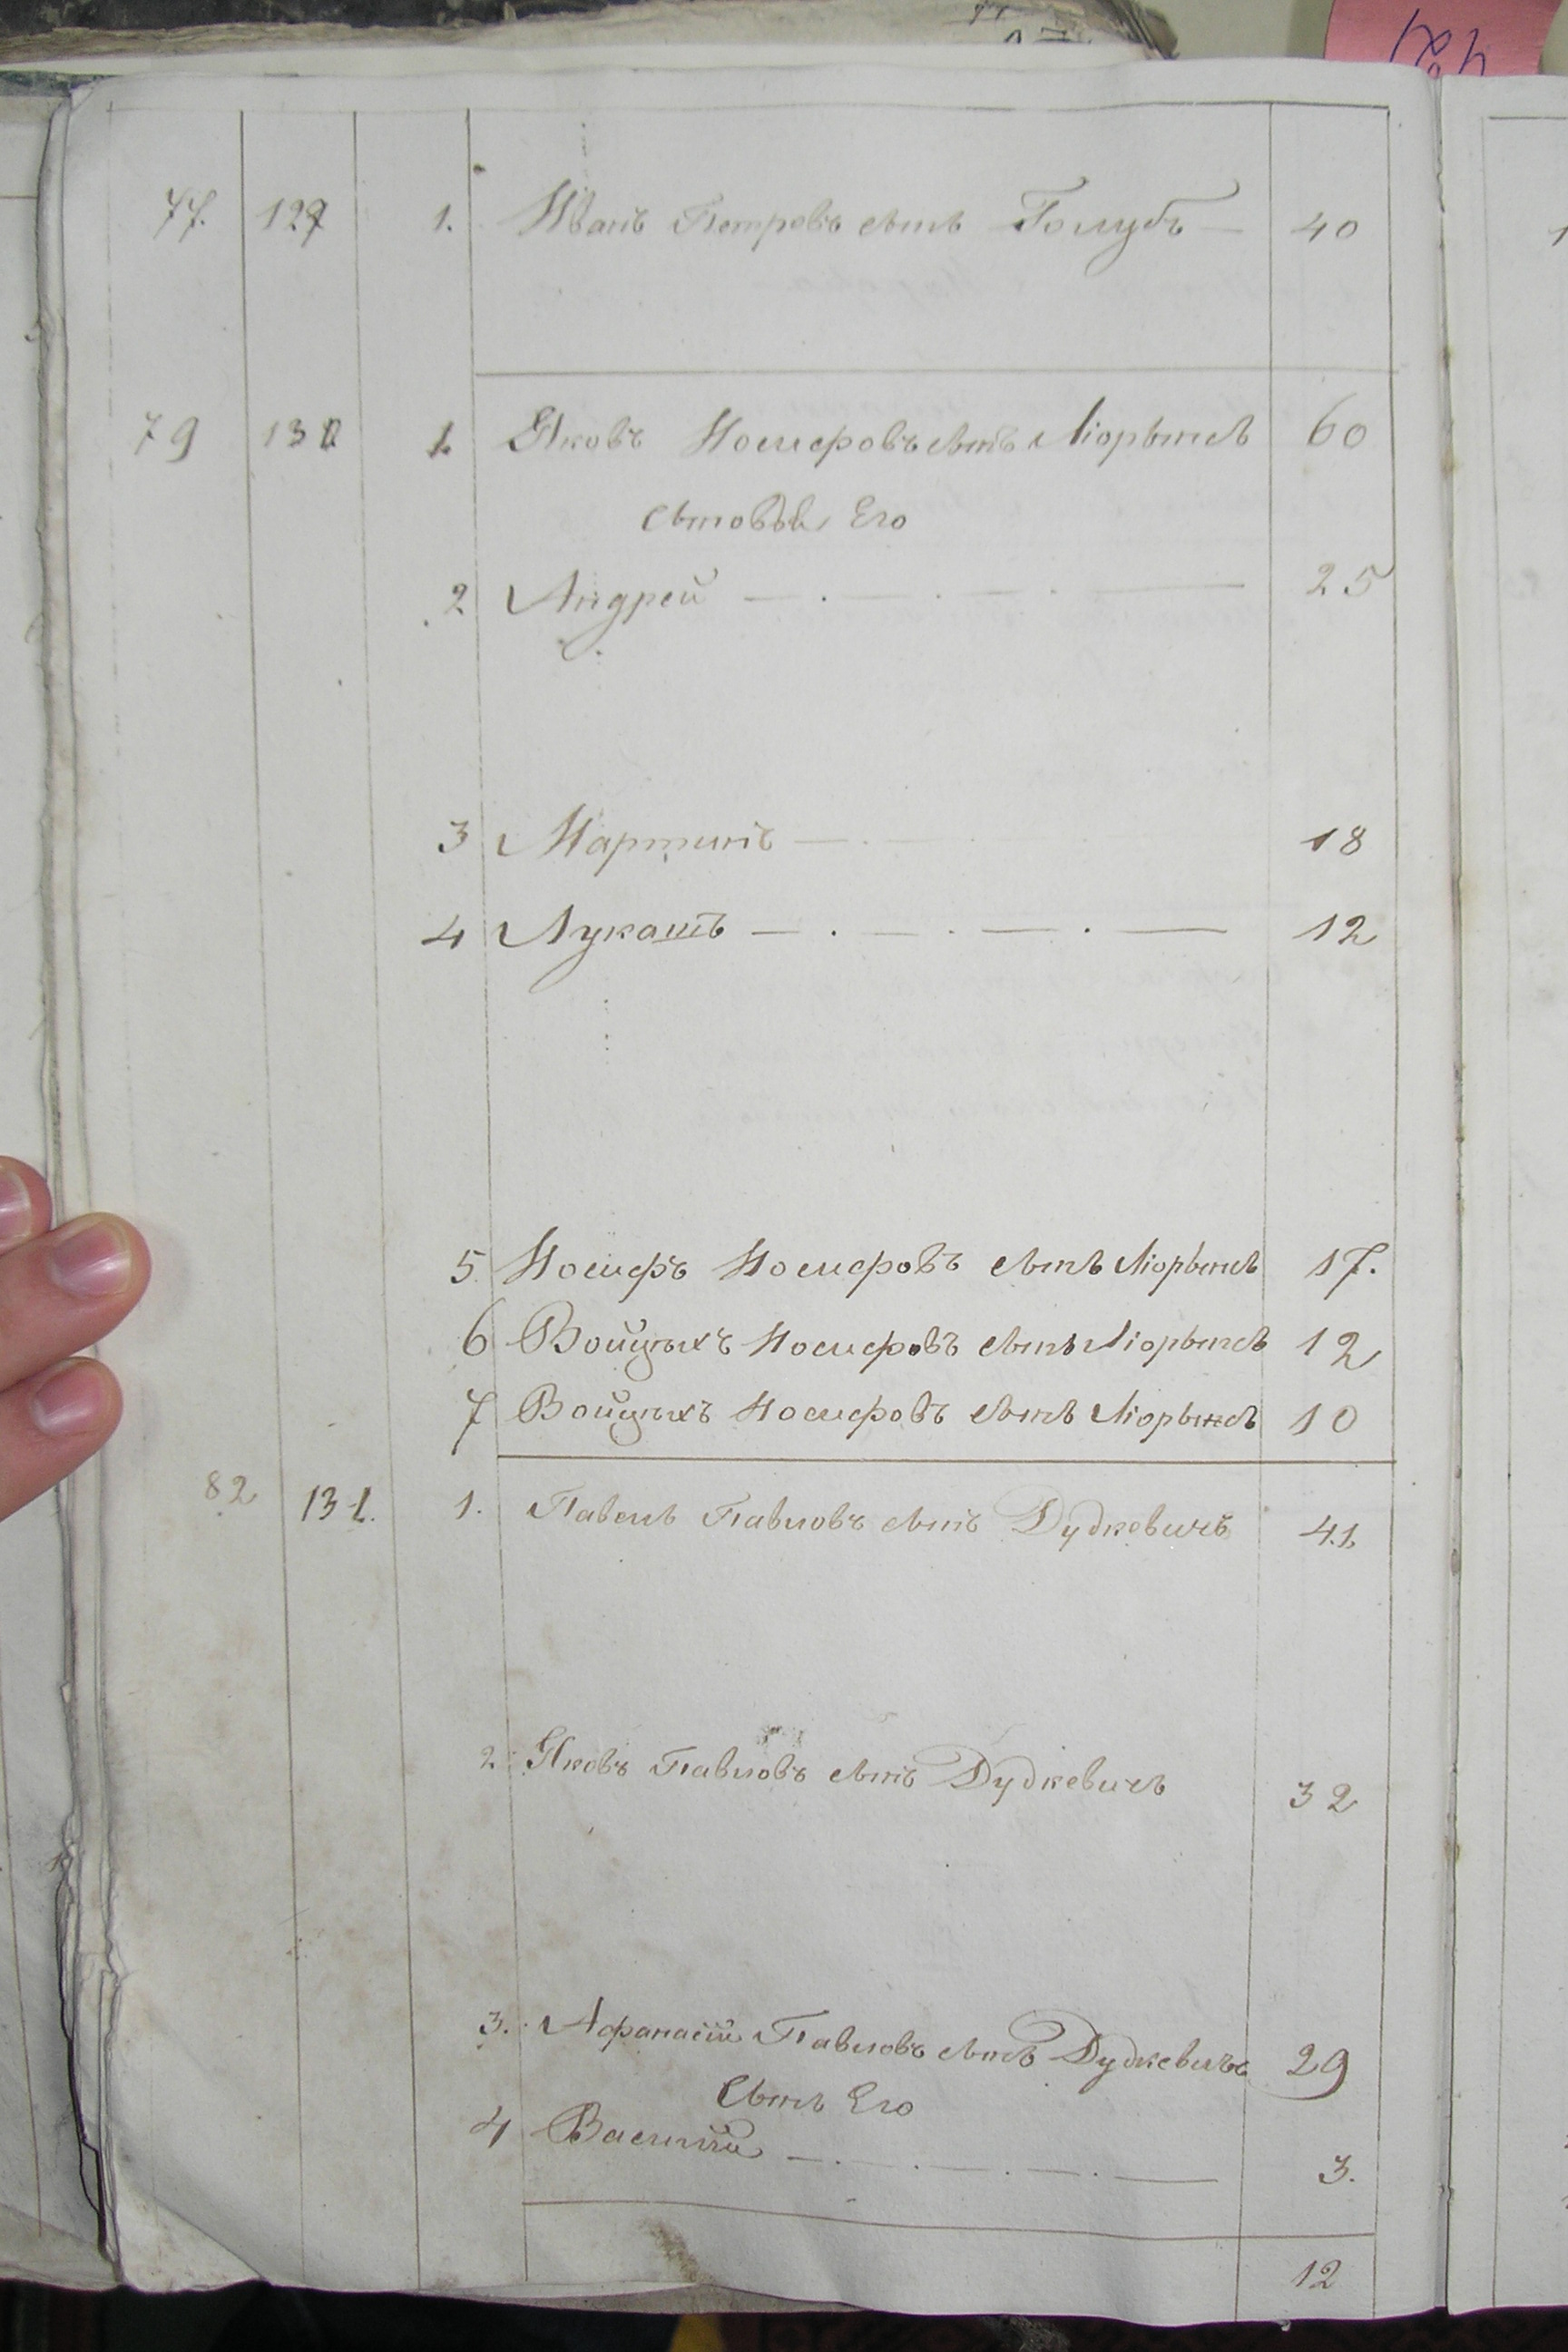 77. 129 1. Иванъ Петровъ сынъ Голубъ — 40
79 130 1. Яковъ Иосифовъ сынъ 60
сыновья Его
2 Андрей — . — . — . — 25
3 Мартинъ — . — 18
4 Лукашъ — . — . — . — 12
5 Иосифъ Иосифовъ сынъ 17.
6 Иосифовъ сынъ 12
7 Иосифовъ сынъ 10
82 131. 1. Павелъ Павловъ сынъ Дудкевичъ 41
2 Яковъ Павловъ сынъ Дудкевичъ 32
3. Афанасій Павловъ сынъ Дудкевичъ 29
Сынъ Его
4 Василій — . — . — . — 3.
12